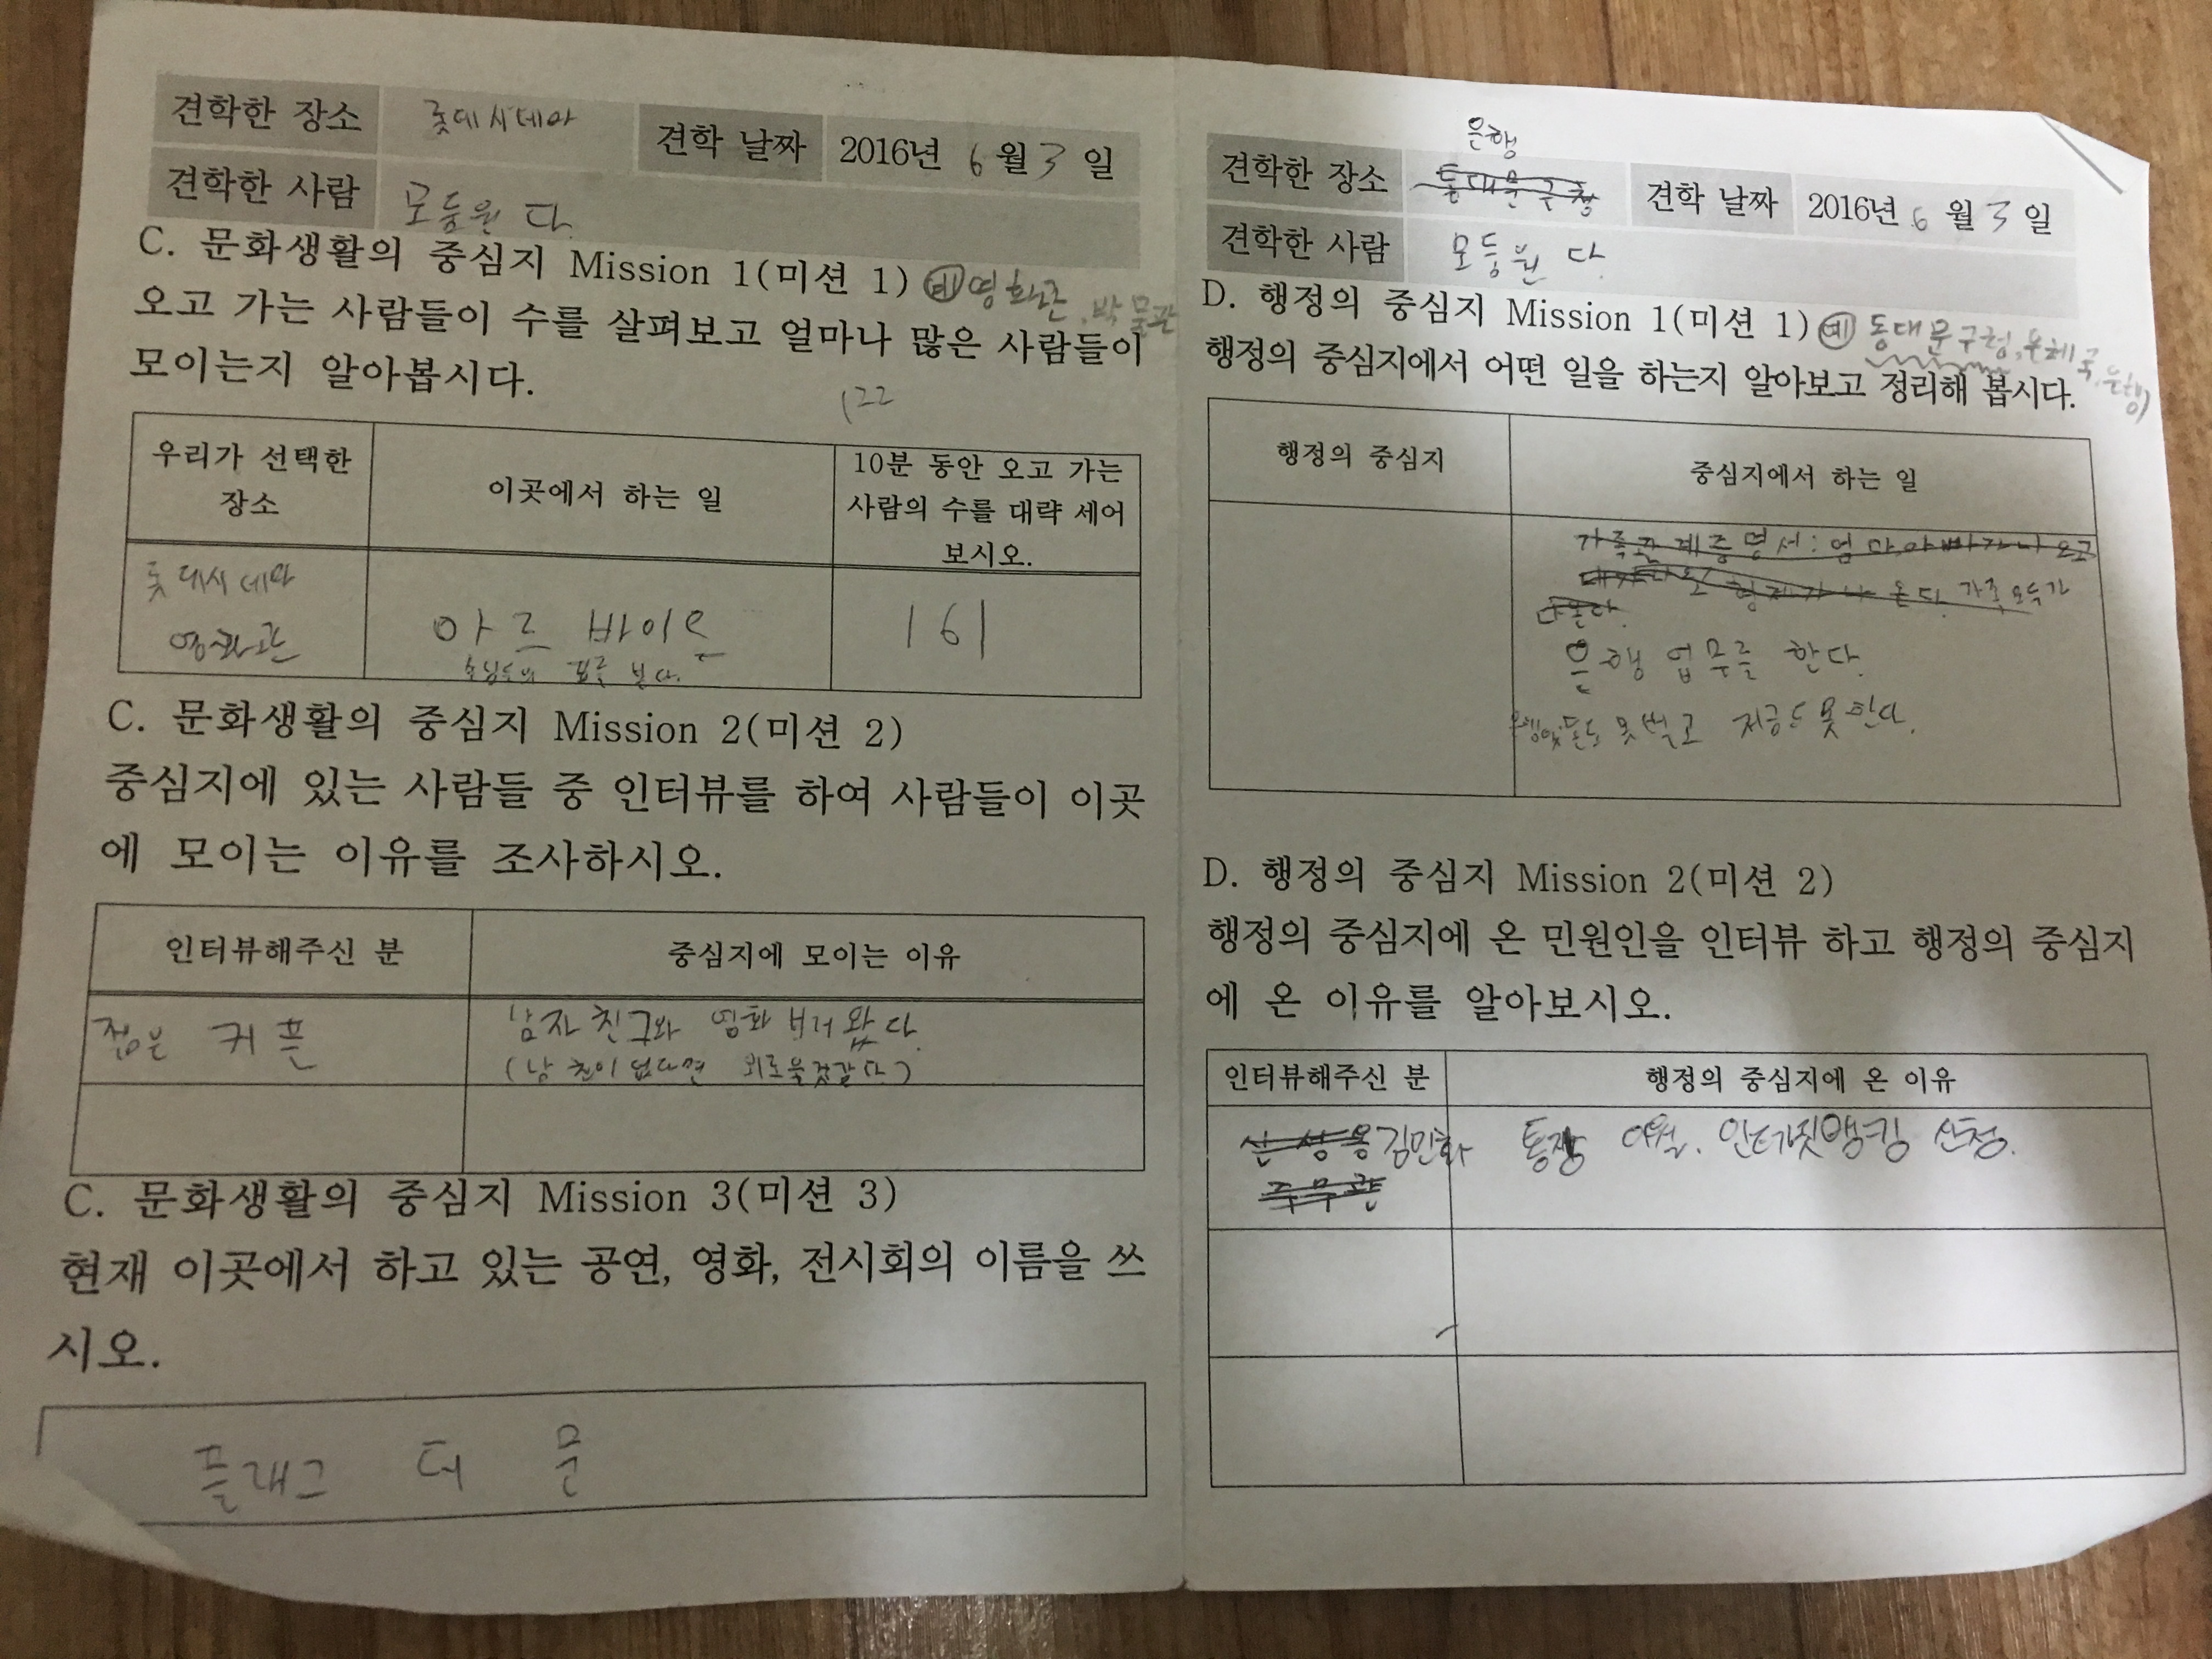 견학한 장소 롯데시네마 견학 날짜 2016년 6월 3일
견학한 사람 모둠원 다.
C. 문화생활의 중심지 Mission 1(미션 1) 예 영화관, 박물관
오고 가는 사람들이 수를 살펴보고 얼마나 많은 사람들이
모이는지 알아봅시다.
122
우리가 선택한
장소
이곳에서 하는 일
10분 동안 오고 가는
사람의 수를 대략 세어
보시오.
롯데시네마
영화관
아르바이으
표를
161
C. 문화생활의 중심지 Mission 2(미션 2)
중심지에 있는 사람들 중 인터뷰를 하여 사람들이 이곳
에 모이는 이유를 조사하시오.
인터뷰해주신 분 중심지에 모이는 이유
젊은 커플
남자친구와 영화 보러 왔다.
(남친이 없다면 외로울것같다)
C. 문화생활의 중심지 Mission 3(미션 3)
현재 이곳에서 하고 있는 공연, 영화, 전시회의 이름을 쓰
시오.
플래그 더 문
은행
견학한 장소 동대문구청 견학 날짜 2016년 6월 3일
견학한 사람 모둠원 다.
D. 행정의 중심지 Mission 1(미션 1) 예 동대문구청, 우체국, 은행
행정의 중심지에서 어떤 일을 하는지 알아보고 정리해 봅시다.
행정의 중심지 중심지에서 하는 일
가족관계증명서: 엄마, 아빠가 나오고
형제가 나온다. 가족모두가
나온다.
은행 업무를 한다.
돈도 못벌고 저금도 못한다.
D. 행정의 중심지 Mission 2(미션 2)
행정의 중심지에 온 민원인을 인터뷰 하고 행정의 중심지
에 온 이유를 알아보시오.
인터뷰해주신 분 행정의 중심지에 온 이유
김민화 통장 개설. 인터넷뱅킹 신청.
주무관